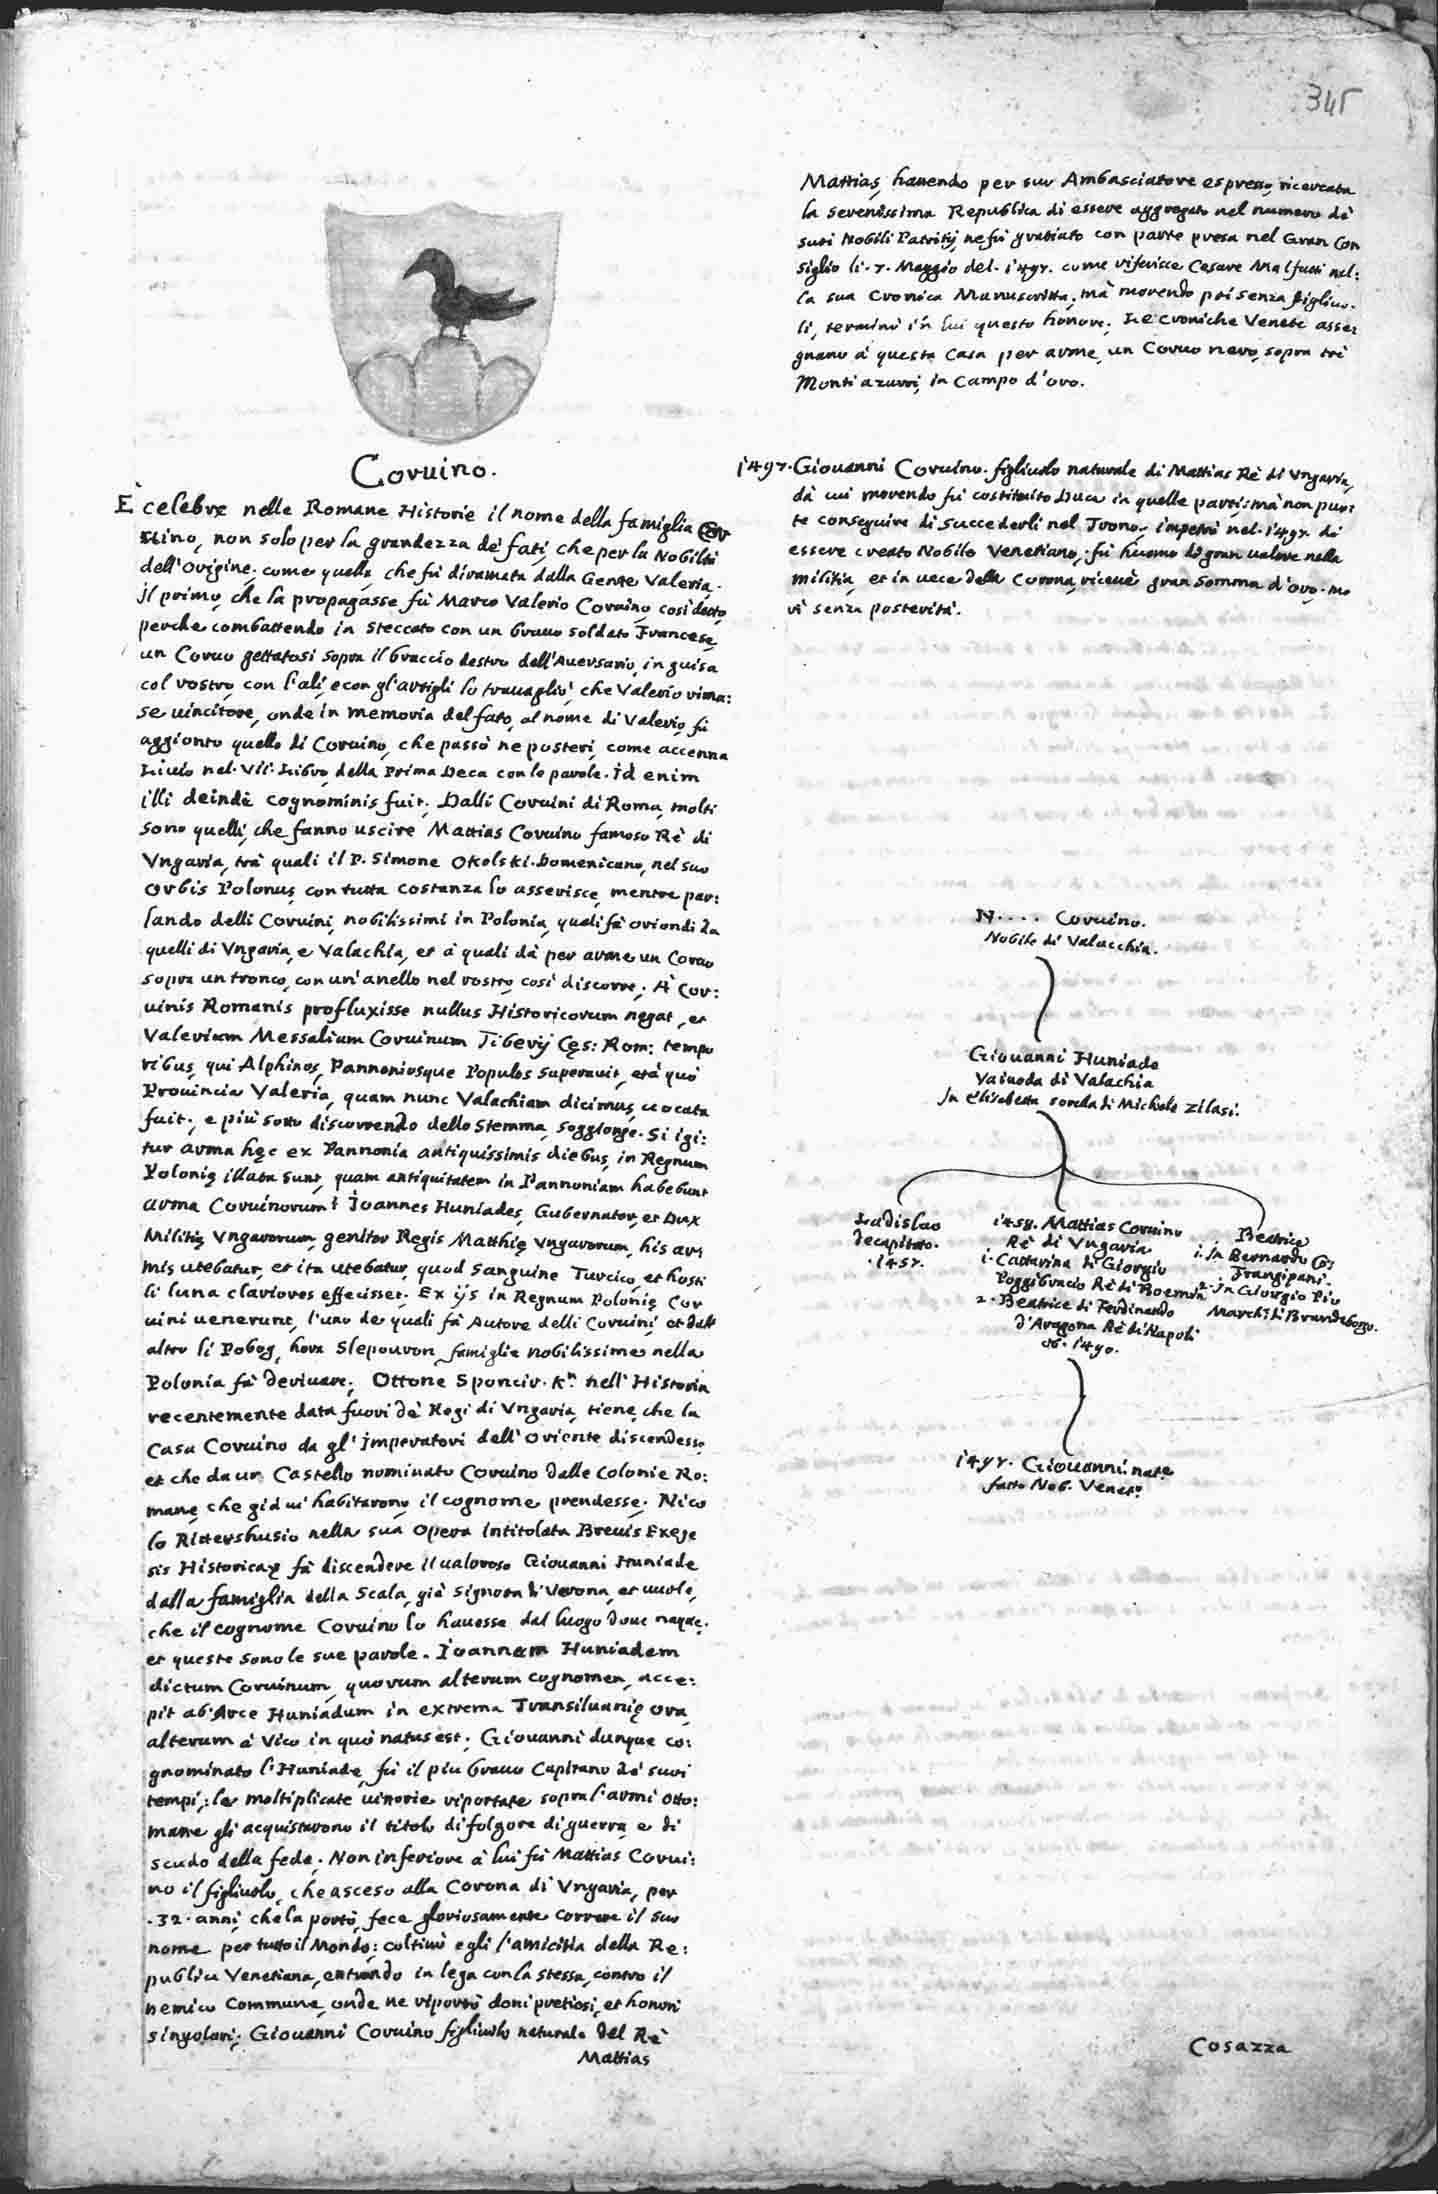 345
Coruino.
È celebre nelle Romane Historie il nome della famiglia Cor
uino, non solo per la grandezza de fati, che per la Nobiltà
dell'Origine, come quella, che fù diramata dalla Gente Valeria.
il primo, che la propagasse fù Marco Valerio Coruino, così detto,
perche combattendo in steccato con un brauo soldato Francese,
un Coruo gettatosi sopra il braccio destro dell'Auersario, in guisa
col rostro, con l'ali, e con gl'artigli lo trauagliò, che Valerio rima:
se uincitore, onde in memoria del fato, al nome di Valerio, fù
aggionto quello di Coruino, che passò ne posteri, come accenna
Liuio nel VII. Libro, della Prima Deca con le parole. id enim
illi deindè cognominis fuit. Dalli Coruini di Roma, molti
sono quelli, che fanno uscire Mattias Coruino famoso Rè di
Vngaria, trà quali il P. Simone Okolski Domenicano, nel suo
Orbis Polonus, con tutta costanza lo asserisce, mentre par:
lando delli Coruini, nobilissimi in Polonia, quali fà oriondi da
quelli di Vngaria, e Valachia, et à quali dà per arme un Coruo
sopra un tronco, con un'anello nel rostro, così discorre. A Cor:
uinis Romanis profluxisse nullus Historicorum negat, et
Valerium Messalium Coruinum Tiberij Cęs: Rom: tempo
ribus, qui Alphinos, Pannoniosque Populos superauit, et à quò
Prouincia Valeria, quam nunc Valachiam dicimus, uocata
fuit. e più sotto discorrendo dello Stemma, soggionge. Si igi:
tur arma hęc ex Pannonia antiquissimis diebus, in Regnum
Polonię illata sunt, quam antiquitatem in Pannoniam habebunt
arma Coruinorum? Joannes Huniades, Gubernator, et Dux
Militię Vngarorum, genitor Regis Matthię Vngarorum, his ar:
mis utebatur, et ita utebatur, quod sanguine Turcico, et hosti
li luna clariores effecisset. Ex ijs in Regnum Polonię Cor
uini uenerunt, l'uno de quali fà Autore delli Coruini, et dall'
altro li Pobog, hora Slepouron, famiglie nobilissime nella
Polonia fà deriuare. Ottone Sponcir. Kn. nell'Historia
recentemente data fuori dè Regi di Vngaria, tiene, che la
Casa Coruino da gl'imperatori dell'Oriente discendesse,
et che da un Castello nominato Coruino dalle Colonie Ro:
mane, che già ui habitarono il cognome prendesse. Nico
lo Rittershusio nella sua Opera intitolata Breuis Exege
sis Historica, fà discendere il ualoroso Giouanni Huniade
dalla famiglia della Scala, già Signora di Verona, et uuole,
che il cognome Coruino lo hauesse dal luogo doue naque,
et queste sono le sue parole. Joannem Huniadem
dictum Coruinum, quorum alterum cognomen, acce:
pit ab Arce Huniadum in extrema Transiluanię ora,
alterum à Vico in quò natus est. Giouanni dunque co:
gnominato l'Huniade, fù il più brauo Capitano de suoi
tempi; le moltiplicate uittorie riportate sopra l'armi otto:
mane gli acquistarono il titolo di folgore di guerra, e di
scudo della fede. Non inferiore à lui fù Mattias Corui:
no il figliuolo, che asceso alla Corona di Vngaria, per
.32. anni, che la portò, fece gloriosamente correre il suo
nome per tutto il Mondo; coltiuò egli l'amicitia della Re:
publica Venetiana, entrando in lega con la stessa, contro il
nemico commune, onde ne riportò doni pretiosi, et honori
singolari. Giouanni Coruino figliuolo naturale del Rè
Mattias
Mattias, hauendo per suo Ambasciatore espresso, ricercata
la Serenissima Republica di essere aggregato nel numero de
suoi Nobili Patritij, ne fù gratiato con parte presa nel Gran Con
siglio li. 7. Maggio del. 1497. come riferisce Cesare Malfatti nel:
la sua Cronica Manuscritta; mà morendo poi senza figliuo.
li, terminò in lui questo honore. Le Croniche Venete asse:
gnano à questa Casa per arme, un Coruo nero, sopra trè
Monti azurri, in Campo d'oro.
1497. Giouanni Coruino. figliuolo naturale di Mattias Rè di Vngaria,
dà cui morendo fù costituito Duca in quelle parti; mà non puo:
te conseguire di succederli nel Trono, impetrò nel. 1497. di
essere creato Nobile Venetiano; fù huomo di gran ualore nella
militia, et in uece della Corona, riceuè gran somma d'oro. mo
rì senza posterità.
N.... Coruino.
Nobile di Valacchia.
Giouanni Huniade
Vaiuoda di Valachia
In Elisabetta sorella di Michele Zilasi.
Ladislao
decapitato.
.1457.
1458. Mattias Coruino
Rè di Vngaria
1. Cattarina di Giorgio
Poggibracio Rè di Boemia
2. Beatrice di Ferdinando
d'Aragona Rè di Napoli
ob. 1490.
Beatrice
1. In Bernardo Co:
Frangipani.
2. In Giorgio Pio
March: di Brandeborgo.
1497. Giouanni. nate
fatto Nob. Veneto
Cosazza